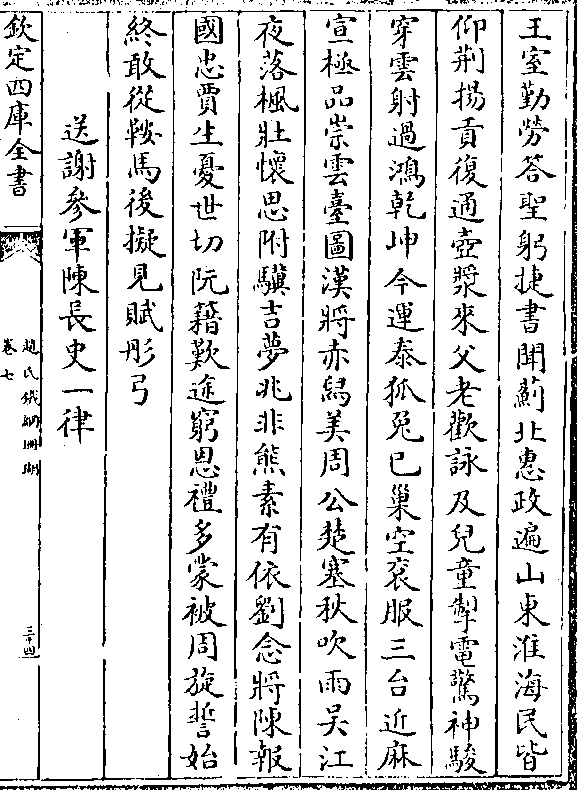 王室勤勞答聖躬捷書聞薊北惠政遍山東淮海民皆
仰荆揚貢復通壺漿來父老歡詠及兒童掣電驚神駿
穿雲射過鴻乾坤今運泰狐兔已巢空袞服三台近麻
宣極品崇雲臺圖漢將赤舄美周公楚塞秋吹雨吴江
夜落楓壯懷思附驥吉夢兆非熊素有依劉念將陳報
國忠賈生憂世切阮籍歎途窮恩禮多蒙被周旋誓始
終敢從鞍馬後擬見賦彤弓
送謝參軍陳長史一律
欽定四庫全書
趙氏鐵網珊瑚
卷七
三十四